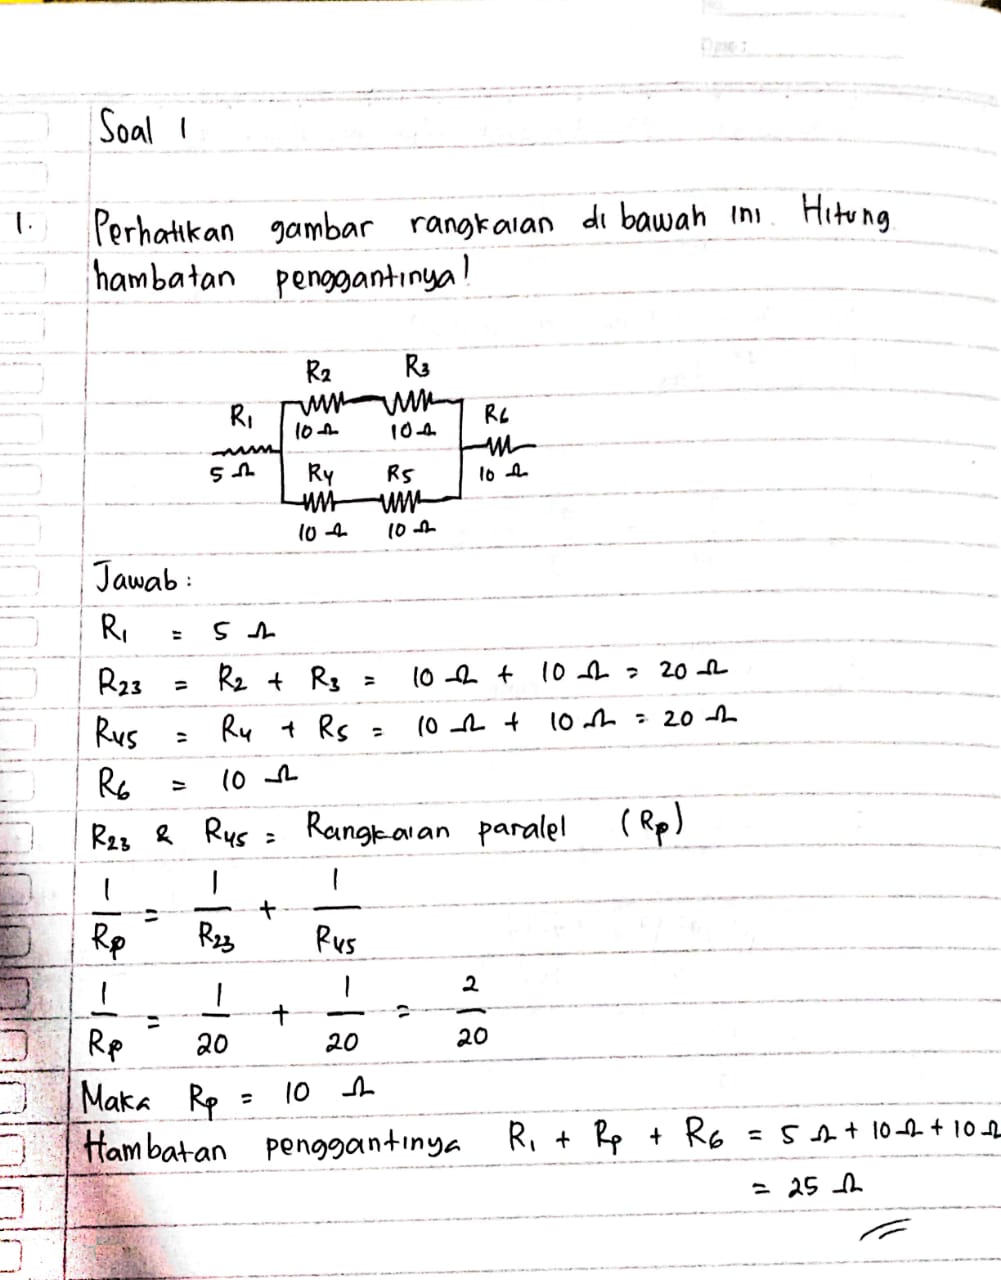 Soal 1
1. Perhatikan gambar rangkaian di bawah ini. Hitung
hambatan penggantinya!
R2 R3
R1 10 Ω 10 Ω R6
5 Ω R4 R5 10 Ω
10 Ω 10 Ω
Jawab :
R1 = 5 Ω
R23 = R2 + R3 = 10 Ω + 10 Ω = 20 Ω
R45 = R4 + R5 = 10 Ω + 10 Ω = 20 Ω
R6 = 10 Ω
R23 & R45 = Rangkaian paralel (Rp)
1/Rp = 1/R23 + 1/R45
1/Rp = 1/20 + 1/20 = 2/20
Maka Rp = 10 Ω
Hambatan penggantinya R1 + Rp + R6 = 5 Ω + 10 Ω + 10 Ω
= 25 Ω